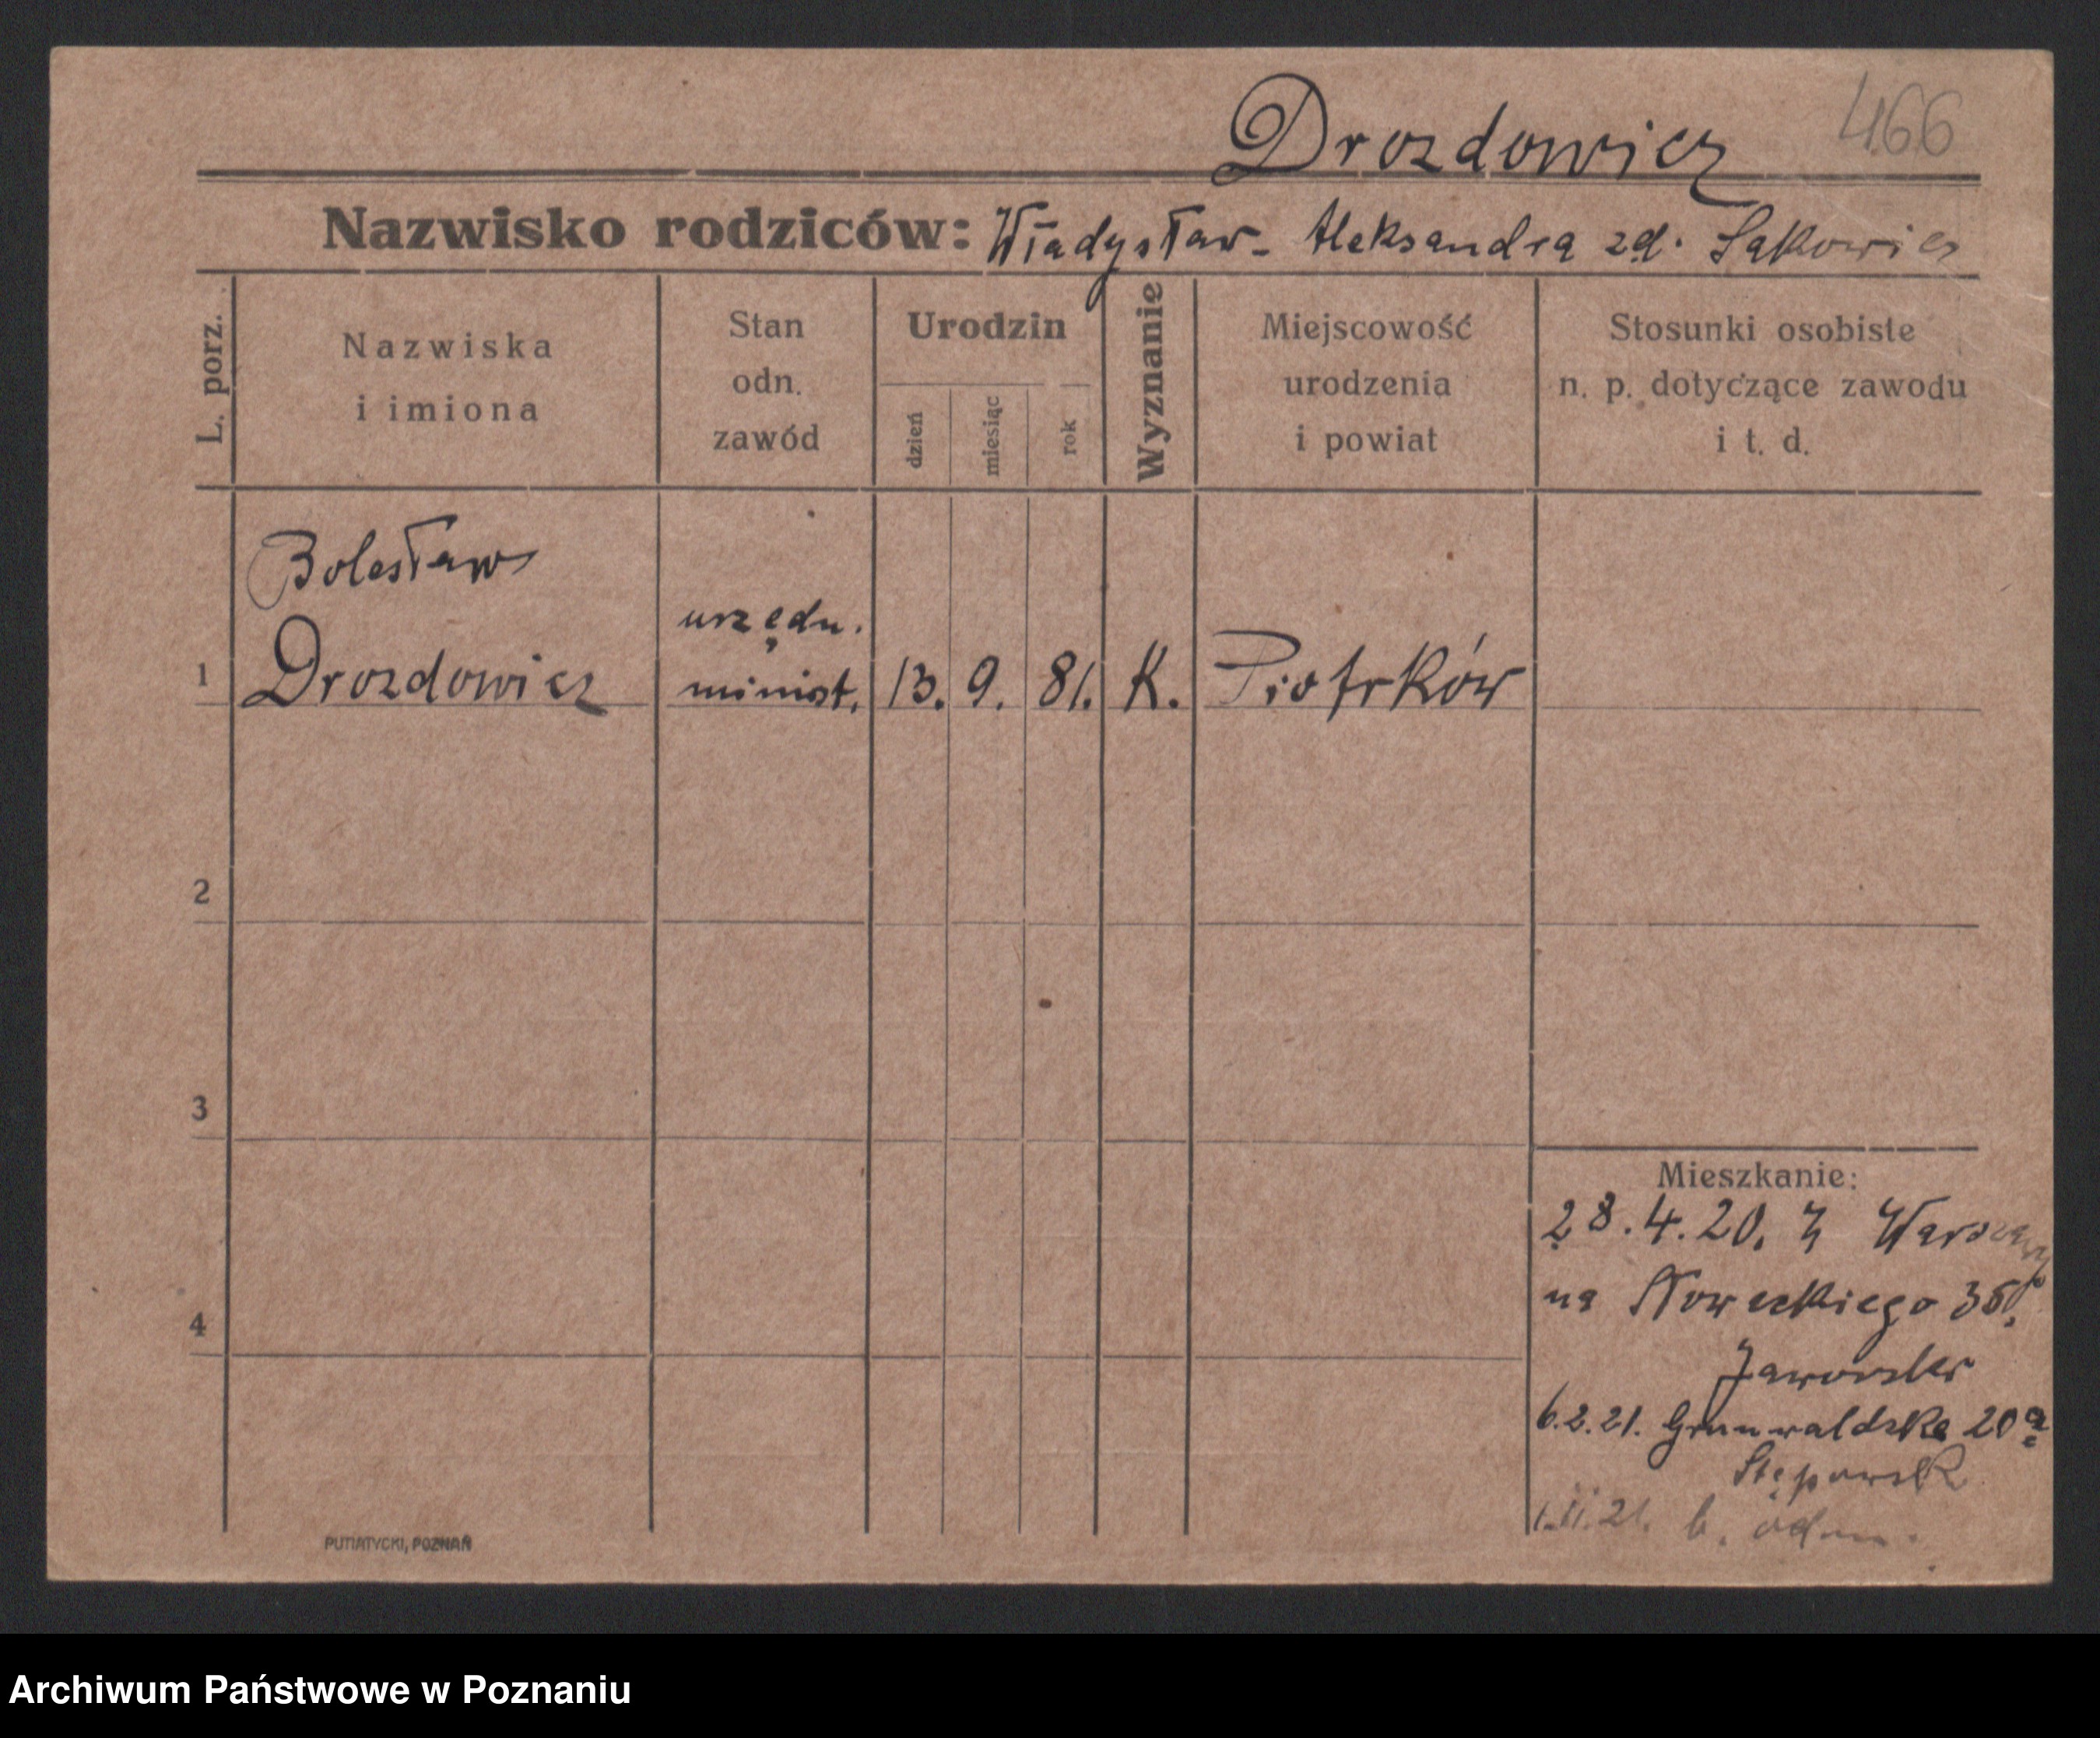 Drozdowicz 466
Nazwisko rodziców: Władysław - Aleksandra zd. Sakowicz
L. porz.
Nazwiska
i imiona
Stan
odn.
zawód
Urodzin
dzień
miesiąc
rok
Wyznanie
Miejscowość
urodzenia
i powiat
Stosunki osobiste
n. p. dotyczące zawodu
i t. d.
Bolesław
urzędn.
1 Drozdowicz minist. 13. 9. 81. K. Piotrków
2
3
Mieszkanie:
28.4.20. z Warszawy
4
na 35
6.2.21. Grunwaldska 20a
1.11.21.
PUTIATYCKI, POZNAŃ
Archiwum Państwowe w Poznaniu